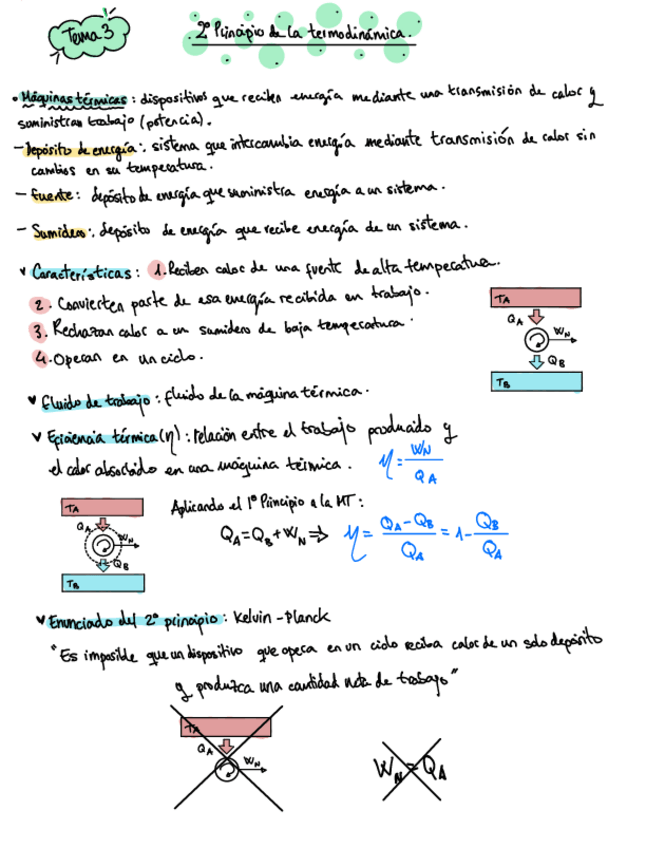 Tema 3
2º Principio de la termodinámica.
• Máquinas térmicas: dispositivos que reciben energía mediante una transmisión de calor y
suministran trabajo (potencia).
- Depósito de energía: sistema que intercambia energía mediante transmisión de calor sin
cambios en su temperatura.
- Fuente: depósito de energía que suministra energía a un sistema.
- Sumidero: depósito de energía que recibe energía de un sistema.
v Características: 1. Reciben calor de una fuente de alta temperatura.
2. Convierten parte de esa energía recibida en trabajo.
3. Rechazan calor a un sumidero de baja temperatura.
4. Operan en un ciclo.
TA
QA
WN
QB
TB
v Fluido de trabajo: fluido de la máquina térmica.
v Eficiencia térmica (η): relación entre el trabajo producido y
el calor absorbido en una máquina térmica. η = WN / QA
TA
QA
WN
QB
TB
Aplicando el 1º Principio a la MT:
QA = QB + WN ⇒ η = (QA - QB) / QA = 1 - QB / QA
v Enunciado del 2º principio: Kelvin-Planck
"Es imposible que un dispositivo que opera en un ciclo reciba calor de un solo depósito
y produzca una cantidad neta de trabajo"
TA
QA
WN
WN = QA